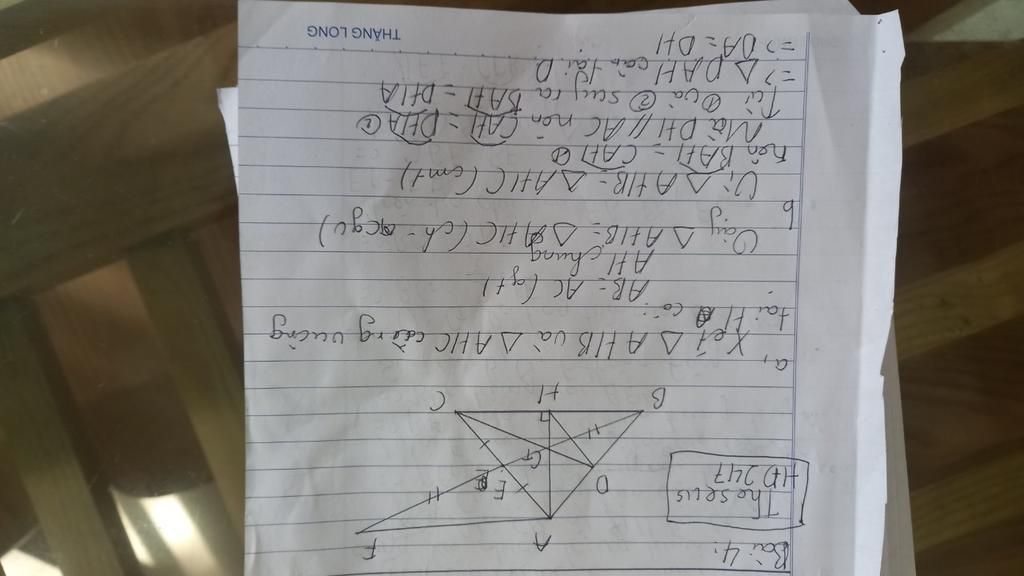 Bài 4:
Theseus
HD 247
F
A
D
E
G
B
H
C
a, Xét △ AHB và △ AHC cùng vuông
tại H có:
AB = AC (gt)
AH chung
Vậy △ AHB = △ AHC (ch - cgv)
b
Vì △ AHB = △ AHC (cmt)
nên BAH = CAH ①
Mà DH // AC nên CAH = DHA ②
Từ ① và ② suy ra BAH = DHA
=> △ DAH cân tại D
=> DA = DH
THĂNG LONG